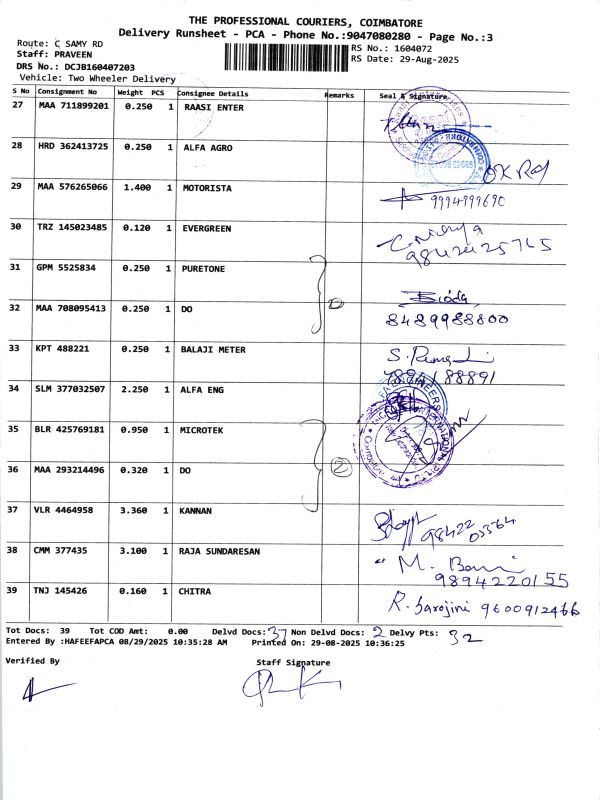 THE PROFESSIONAL COURIERS, COIMBATORE
Delivery Runsheet - PCA - Phone No.:9047080280 - Page No.:3
Route: C SAMY RD
RS No.: 1604072
Staff: PRAVEEN
RS Date: 29-Aug-2025
DRS No.: DCJB160407203
Vehicle: Two Wheeler Delivery
S No Consignment No Weight PCS Consignee Details Remarks Seal & Signature
27 MAA 711899201 0.250 1 RAASI ENTER
28 HRD 362413725 0.250 1 ALFA AGRO
29 MAA 576265066 1.400 1 MOTORISTA 9994999690
30 TRZ 145023485 0.120 1 EVERGREEN
31 GPM 5525834 0.250 1 PURETONE
32 MAA 708095413 0.250 1 DO 8489988800
33 KPT 488221 0.250 1 BALAJI METER
34 SLM 377032507 2.250 1 ALFA ENG
35 BLR 425769181 0.950 1 MICROTEK
36 MAA 293214496 0.320 1 DO 2
37 VLR 4464958 3.360 1 KANNAN
38 CMM 377435 3.100 1 RAJA SUNDARESAN 9894220155
39 TNJ 145426 0.160 1 CHITRA R. Sarojini 9600912466
Tot Docs: 39 Tot COD Amt: 0.00 Delvd Docs: 37 Non Delvd Docs: 2 Delvy Pts: 32
Entered By :HAFEEFAPCA 08/29/2025 10:35:28 AM Printed On: 29-08-2025 10:36:25
Verified By Staff Signature